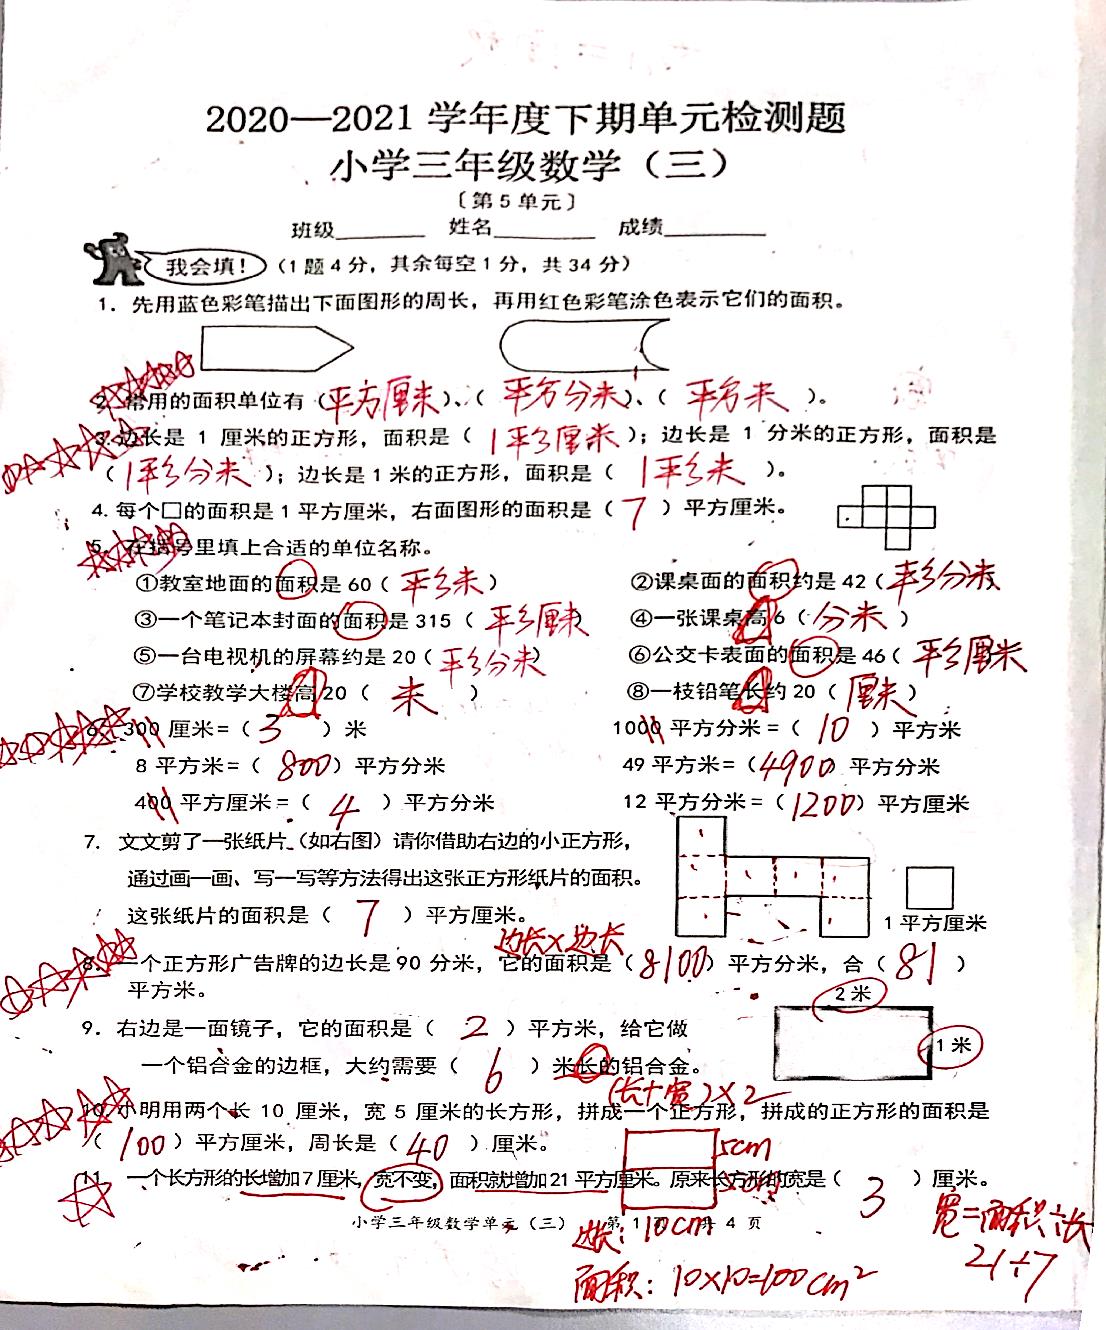 2020—2021 学年度下期单元检测题
小学三年级数学（三）
〔第 5 单元〕
班级________ 姓名_________ 成绩_________
我会填！（1 题 4 分，其余每空 1 分，共 34 分）
1. 先用蓝色彩笔描出下面图形的周长，再用红色彩笔涂色表示它们的面积。
2. 常用的面积单位有（平方厘米）、（平方分米）、（平方米）。
3. 边长是 1 厘米的正方形，面积是（1平方厘米）；边长是 1 分米的正方形，面积是
（1平方分米）；边长是 1 米的正方形，面积是（1平方米）。
4. 每个□的面积是 1 平方厘米，右面图形的面积是（7）平方厘米。
5. 在括号里填上合适的单位名称。
①教室地面的面积是 60（平方米） ②课桌面的面积约是 42（平方分米
③一个笔记本封面的面积是 315（平方厘米） ④一张课桌高 6（分米）
⑤一台电视机的屏幕约是 20（平方分米） ⑥公交卡表面的面积是 46（平方厘米
⑦学校教学大楼高 20（米） ⑧一枝铅笔长约 20（厘米）
6. 300 厘米=（3）米 1000 平方分米=（10）平方米
8 平方米=（800）平方分米 49 平方米=（4900）平方分米
400 平方厘米=（4）平方分米 12 平方分米=（1200）平方厘米
7. 文文剪了一张纸片（如右图）请你借助右边的小正方形，
通过画一画、写一写等方法得出这张正方形纸片的面积。
这张纸片的面积是（7）平方厘米。
1 平方厘米
边长×边长
8. 一个正方形广告牌的边长是 90 分米，它的面积是（8100）平方分米，合（81）
平方米。
2 米
9. 右边是一面镜子，它的面积是（2）平方米，给它做
1 米
一个铝合金的边框，大约需要（6）米长的铝合金。
（长+宽）×2
10. 小明用两个长 10 厘米，宽 5 厘米的长方形，拼成一个正方形，拼成的正方形的面积是
（100）平方厘米，周长是（40）厘米。
5cm
11. 一个长方形的长增加 7 厘米，宽不变，面积就增加 21 平方厘米。原来长方形的宽是（3）厘米。
小学三年级数学单元（三） 第 1 页 共 4 页
边长：10cm
宽=面积÷长
21÷7
面积：10×10=100cm²